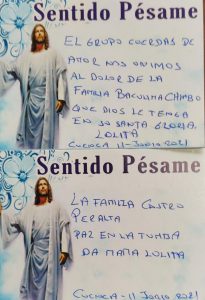 Sentido Pésame
EL GRUPO CUERDAS DE
AMOR NOS UNIMOS
AL DOLOR DE LA
FAMILIA BACULIMA CHIMBO
QUE DIOS LE TENGA
EN SU SANTA GLORIA
LOLITA
CUENCA 11-Junio 2021
Sentido Pésame
LA FAMILIA CASTRO
PERALTA
PAZ EN LA TUMBA
DA MAMA LOLITA
CUENCA - 11 Junio 2021